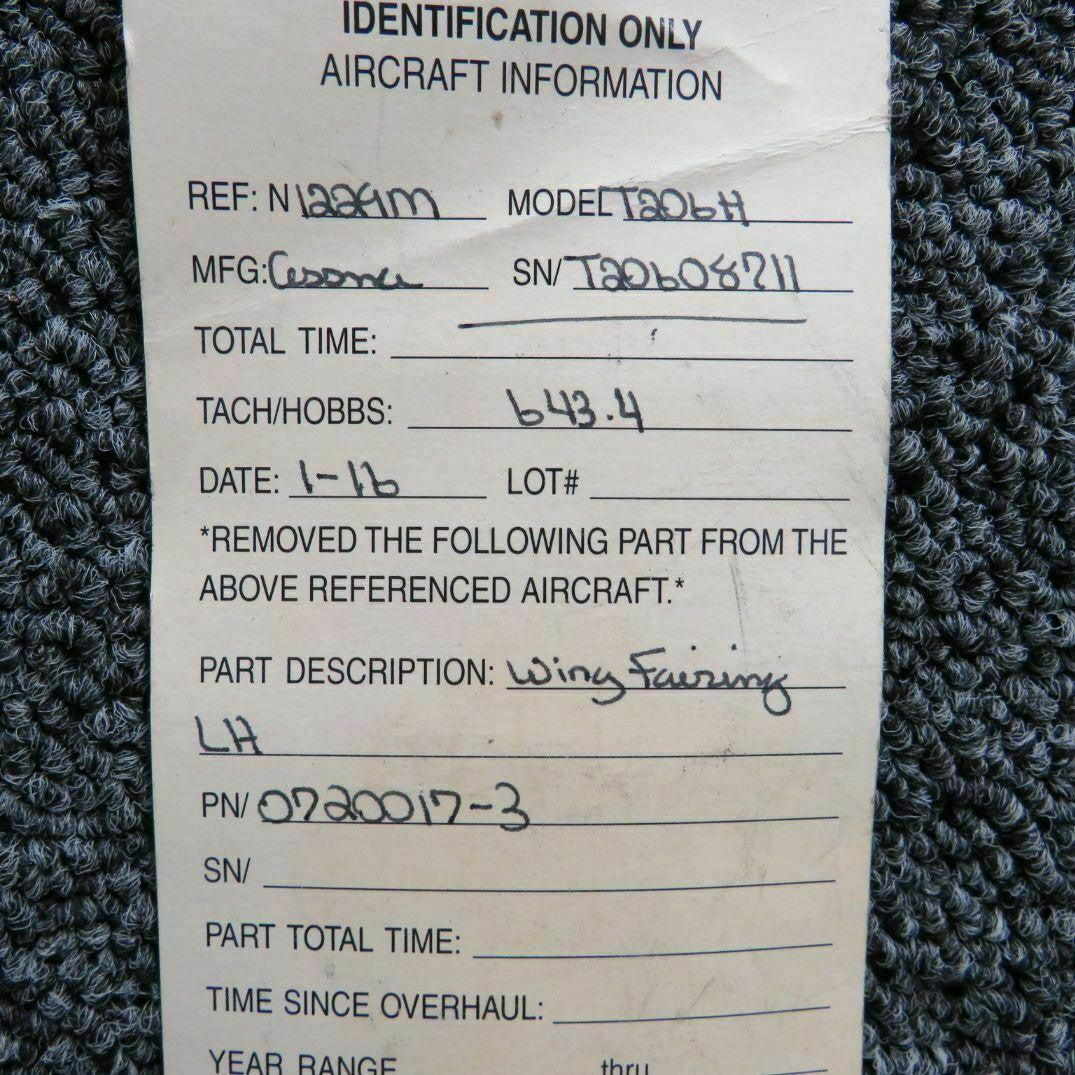 IDENTIFICATION ONLY
AIRCRAFT INFORMATION
REF: N1229M MODEL T206H
MFG: Cessna SN/ T20608711
TOTAL TIME:
TACH/HOBBS: 643.4
DATE: 1-16 LOT#
*REMOVED THE FOLLOWING PART FROM THE
ABOVE REFERENCED AIRCRAFT.*
PART DESCRIPTION: Wing Fairing
LH
PN/ 0720017-3
SN/
PART TOTAL TIME:
TIME SINCE OVERHAUL:
YEAR RANGE thru